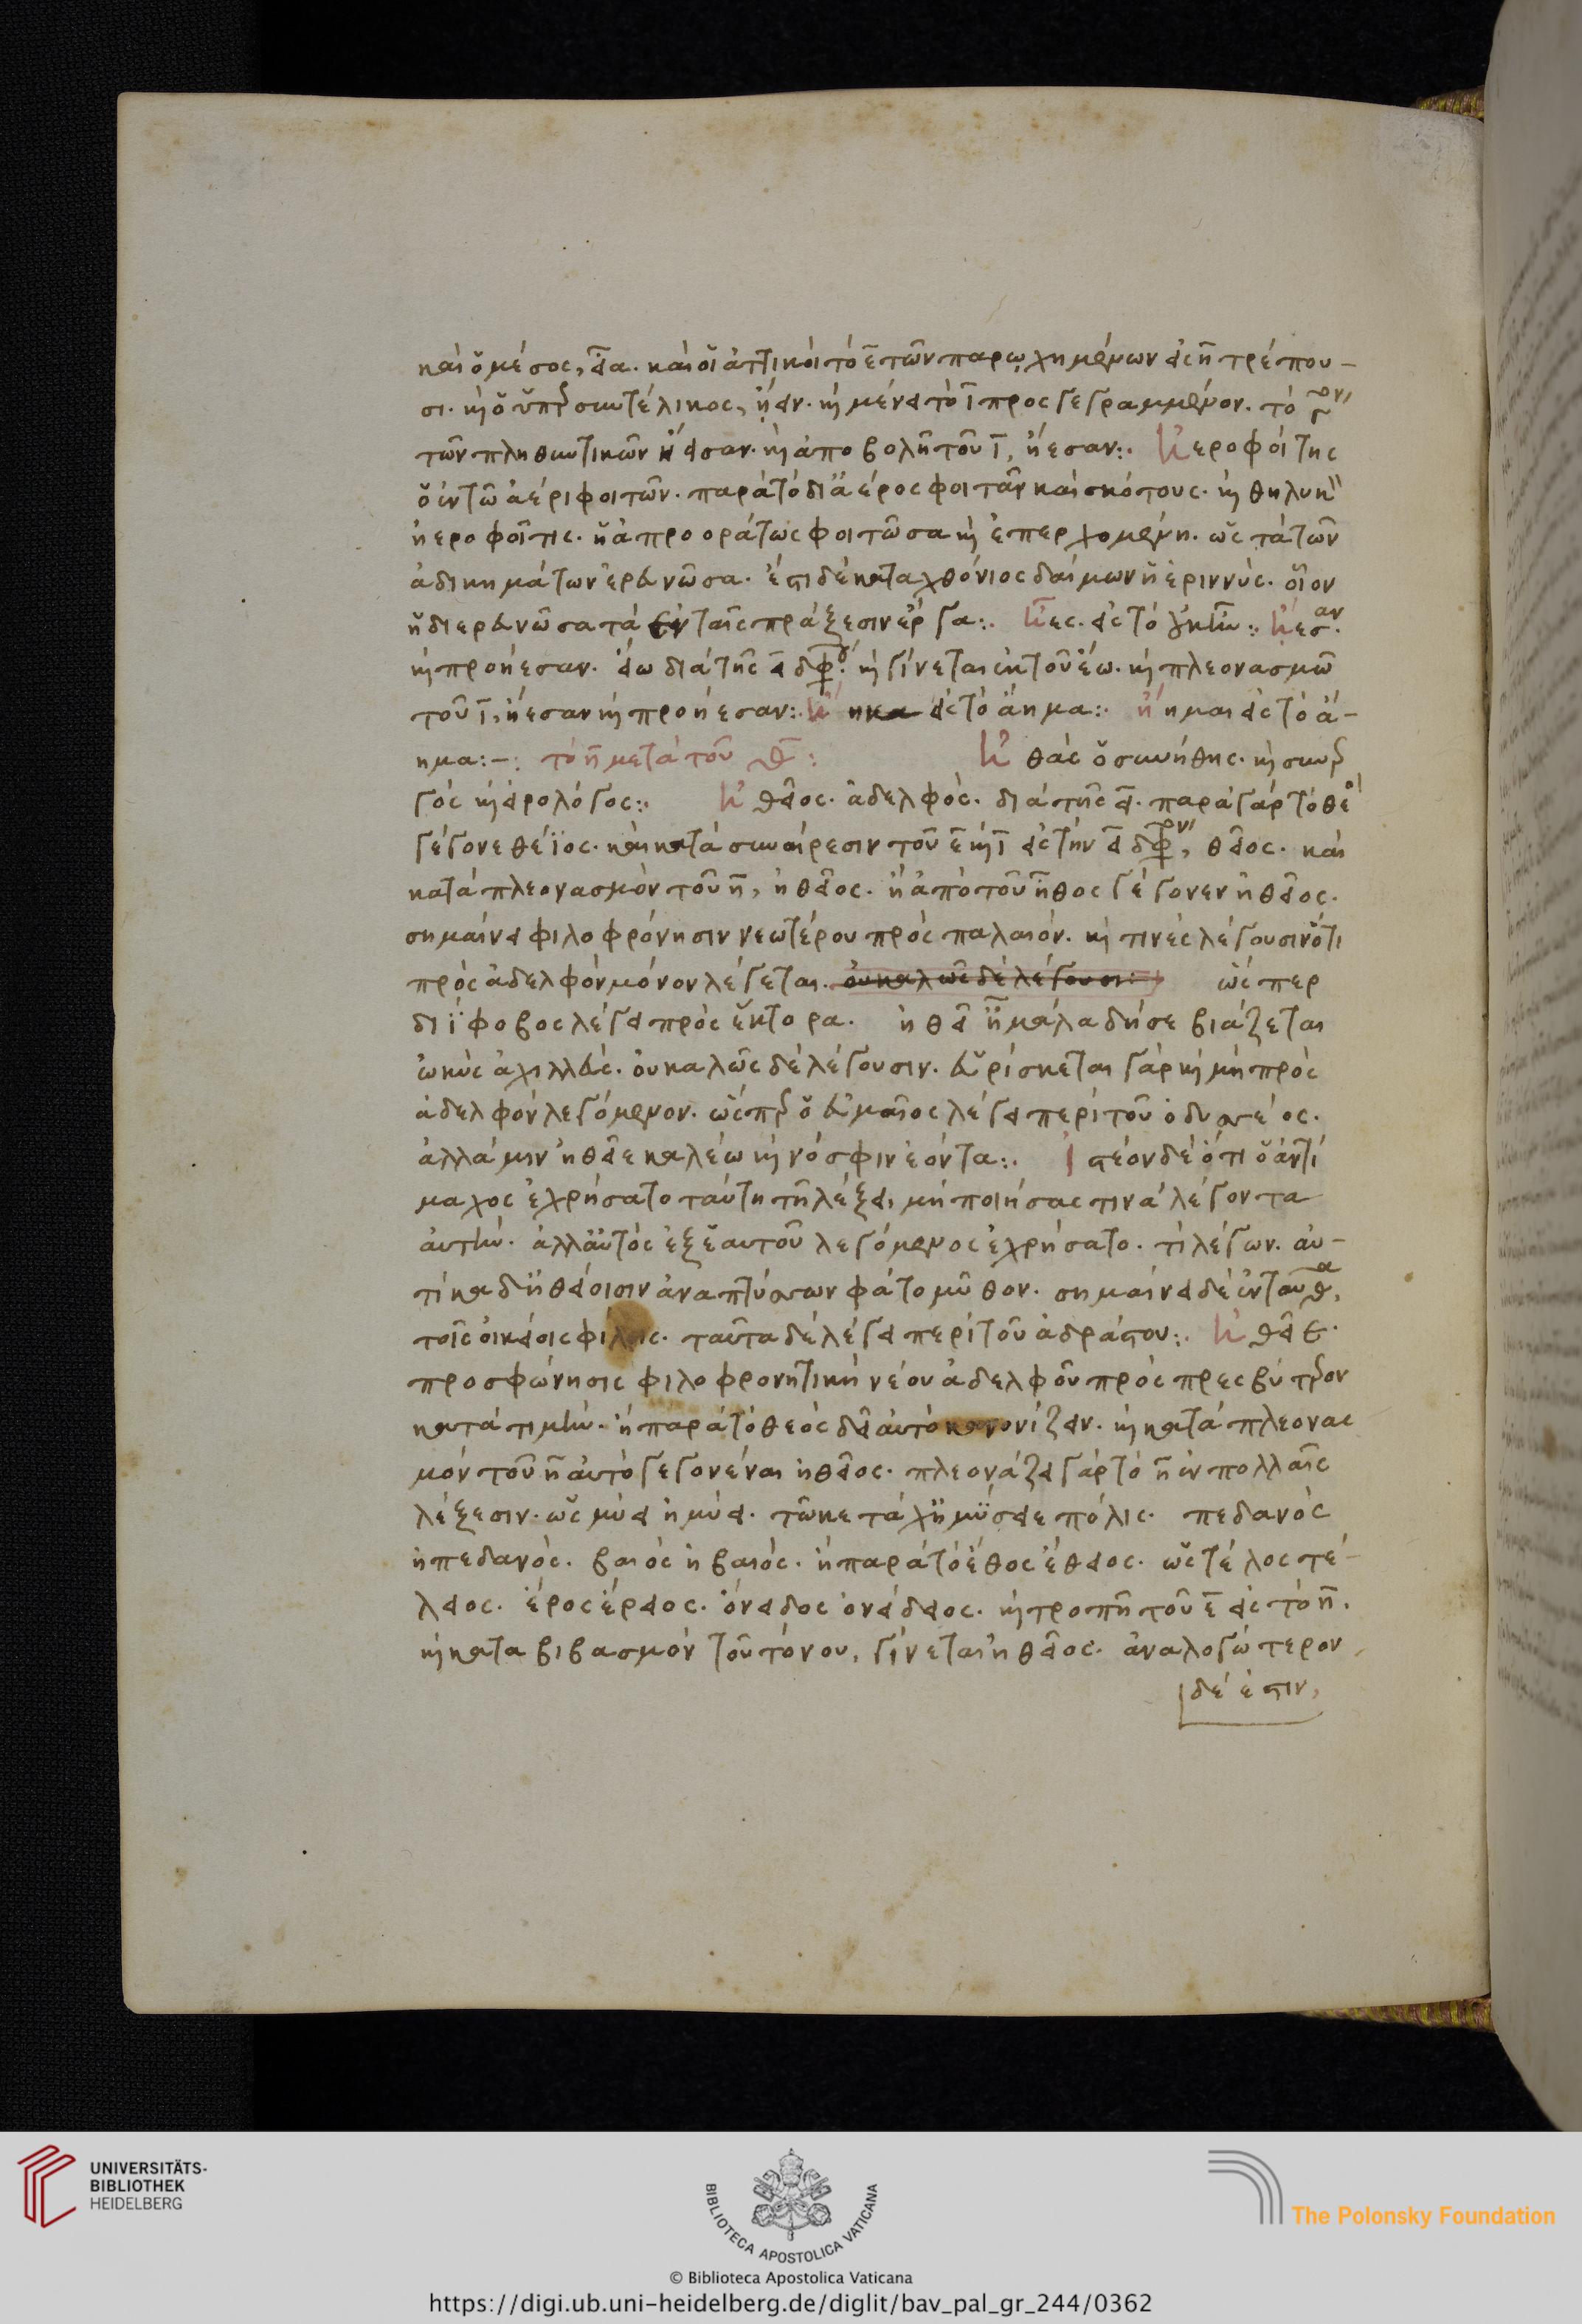 καὶ ὁ μέσος, εἶα. καὶ οἱ ἀττικοὶ τὸ ε̄ τῶν παρῳχημένων εἰς η̄ τρέπου-
σι. καὶ ὁ ὑπερσυντέλικος, ἤειν. καὶ μένει τὸ ῑ προσγεγραμμένον. τὸ
τῶν πληθυντικῶν ἤεισαν. καὶ ἀποβολῆ τοῦ ῑ, ἤεσαν:. ἠεροφοίτης
ὁ ἐν τῶ ἀέρι φοιτῶν. παρὰ τὸ δι' ἀέρος φοιτᾶν καὶ σκότους. καὶ θηλυκ
ἠεροφοῖτις. ἡ ἀπροοράτως φοιτῶσα καὶ ἐπερχομένη. ὡς τὰ τῶν
ἀδικημάτων ἐρευνῶσα. ἔστι δὲ καταχθόνιος δαίμων ἡ ἐριννύς. οἷον
ἡ διερευνῶσα τὰ ἐν ταῖς πράξεσιν ἔργα:. ἤες. εἰς τὸ :. ἤεσαν.
καὶ προήεσαν. εἴω διὰ τῆς ει διφθόγγου. καὶ γίνεται ἐκ τοῦ ἔω. καὶ πλεονασμῶ
τοῦ ῑ, ἤεσαν καὶ προήεσαν:. ἤηκα εἰς τὸ ἄημα:. ἤημαι εἰς τὸ ἄ-
ημα:-: τὸ η̄ μετὰ τοῦ θ̄: ἠθὰς ὁ συνήθης. καὶ συνερ
γὸς καὶ εἰρολόγος:. ἠθεῖος. ἀδελφὸς. διὰ τῆς ει. παρὰ γὰρ τὸ θεῖ
γέγονε θέϊος. καὶ κατὰ συναίρεσιν τοῦ ε̄ καὶ ῑ εἰς τὴν ει δίφθογγον, θεῖος. καὶ
κατὰ πλεονασμὸν τοῦ η̄, ἠθεῖος. ἢ ἀπὸ τοῦ ἦθος γέγονεν ἠθεῖος.
σημαίνει φιλοφρόνησιν νεωτέρου πρὸς παλαιόν. καὶ τινὲς λέγουσιν ὅτι
πρὸς ἀδελφὸν μόνον λέγεται. οὐ καλῶς δὲ λέγουσι: ὥσπερ
δηίφοβος λέγει πρὸς ἕκτορα. ἠθεῖ' ἦ μάλα δή σε βιάζεται
ὠκὺς ἀχιλλεύς. οὐ καλῶς δὲ λέγουσιν. εὑρίσκεται γὰρ καὶ μὴ πρὸς
ἀδελφὸν λεγόμενον. ὥσπερ ὁ εὔμαιος λέγει περὶ τοῦ ὀδυσσέος.
ἀλλά μιν ἠθεῖε καλέω καὶ νόσφιν ἐόντα:. ἰστέον δὲ ὅτι ὁ ἀντί
μαχος ἐχρήσατο ταύτη τῆ λέξει, μὴ ποιήσας τινὰ λέγοντα
αὐτὴν. ἀλλ' αὐτὸς ἐξ ἑαυτοῦ λεγόμενος ἐχρήσατο. τί λέγων. αὐ-
τίκα δ' ἠθείοισιν ἀναπτύσσων φάτο μῦθον. σημαίνει δὲ ἐνταῦθα,
τοῖς οἰκείοις φίλοις. ταῦτα δὲ λέγει περὶ τοῦ ἀδράστου:. ἠθεῖε.
προσφώνησις φιλοφρονητικὴ νέου ἀδελφοῦ πρὸς πρεσβύτερον
κατὰ τιμὴν. ἢ παρὰ τὸ θεὸς δεῖ αὐτὸ κανονίζειν. καὶ κατὰ πλεονασ
μὸν τοῦ η̄ αὐτὸ γεγονέναι ἠθεῖος. πλεονάζει γὰρ τὸ η̄ ἐν πολλαῖς
λέξεσιν. ὡς μύει ἠμύει. τῶ κε τάχ' ἠμύσειε πόλις. πεδανὸς
ἠπεδανὸς. βαιὸς ἠβαιὸς. ἢ παρὰ τὸ ἔθος ἔθειος. ὡς τέλος τέ-
λειος. ἔρος ἔρειος. ὄνειδος ὀνείδειος. καὶ τροπῆ τοῦ ε̄ εἰς τὸ η̄.
καὶ καταβιβασμὸν τοῦ τόνου, γίνεται ἠθεῖος. ἀναλογώτερον
δέ ἐστιν,
UNIVERSITÄTS-
BIBLIOTHEK
HEIDELBERG
BIBLIOTECA APOSTOLICA VATICANA
The Polonsky Foundation
© Biblioteca Apostolica Vaticana
https://digi.ub.uni-heidelberg.de/diglit/bav_pal_gr_244/0362